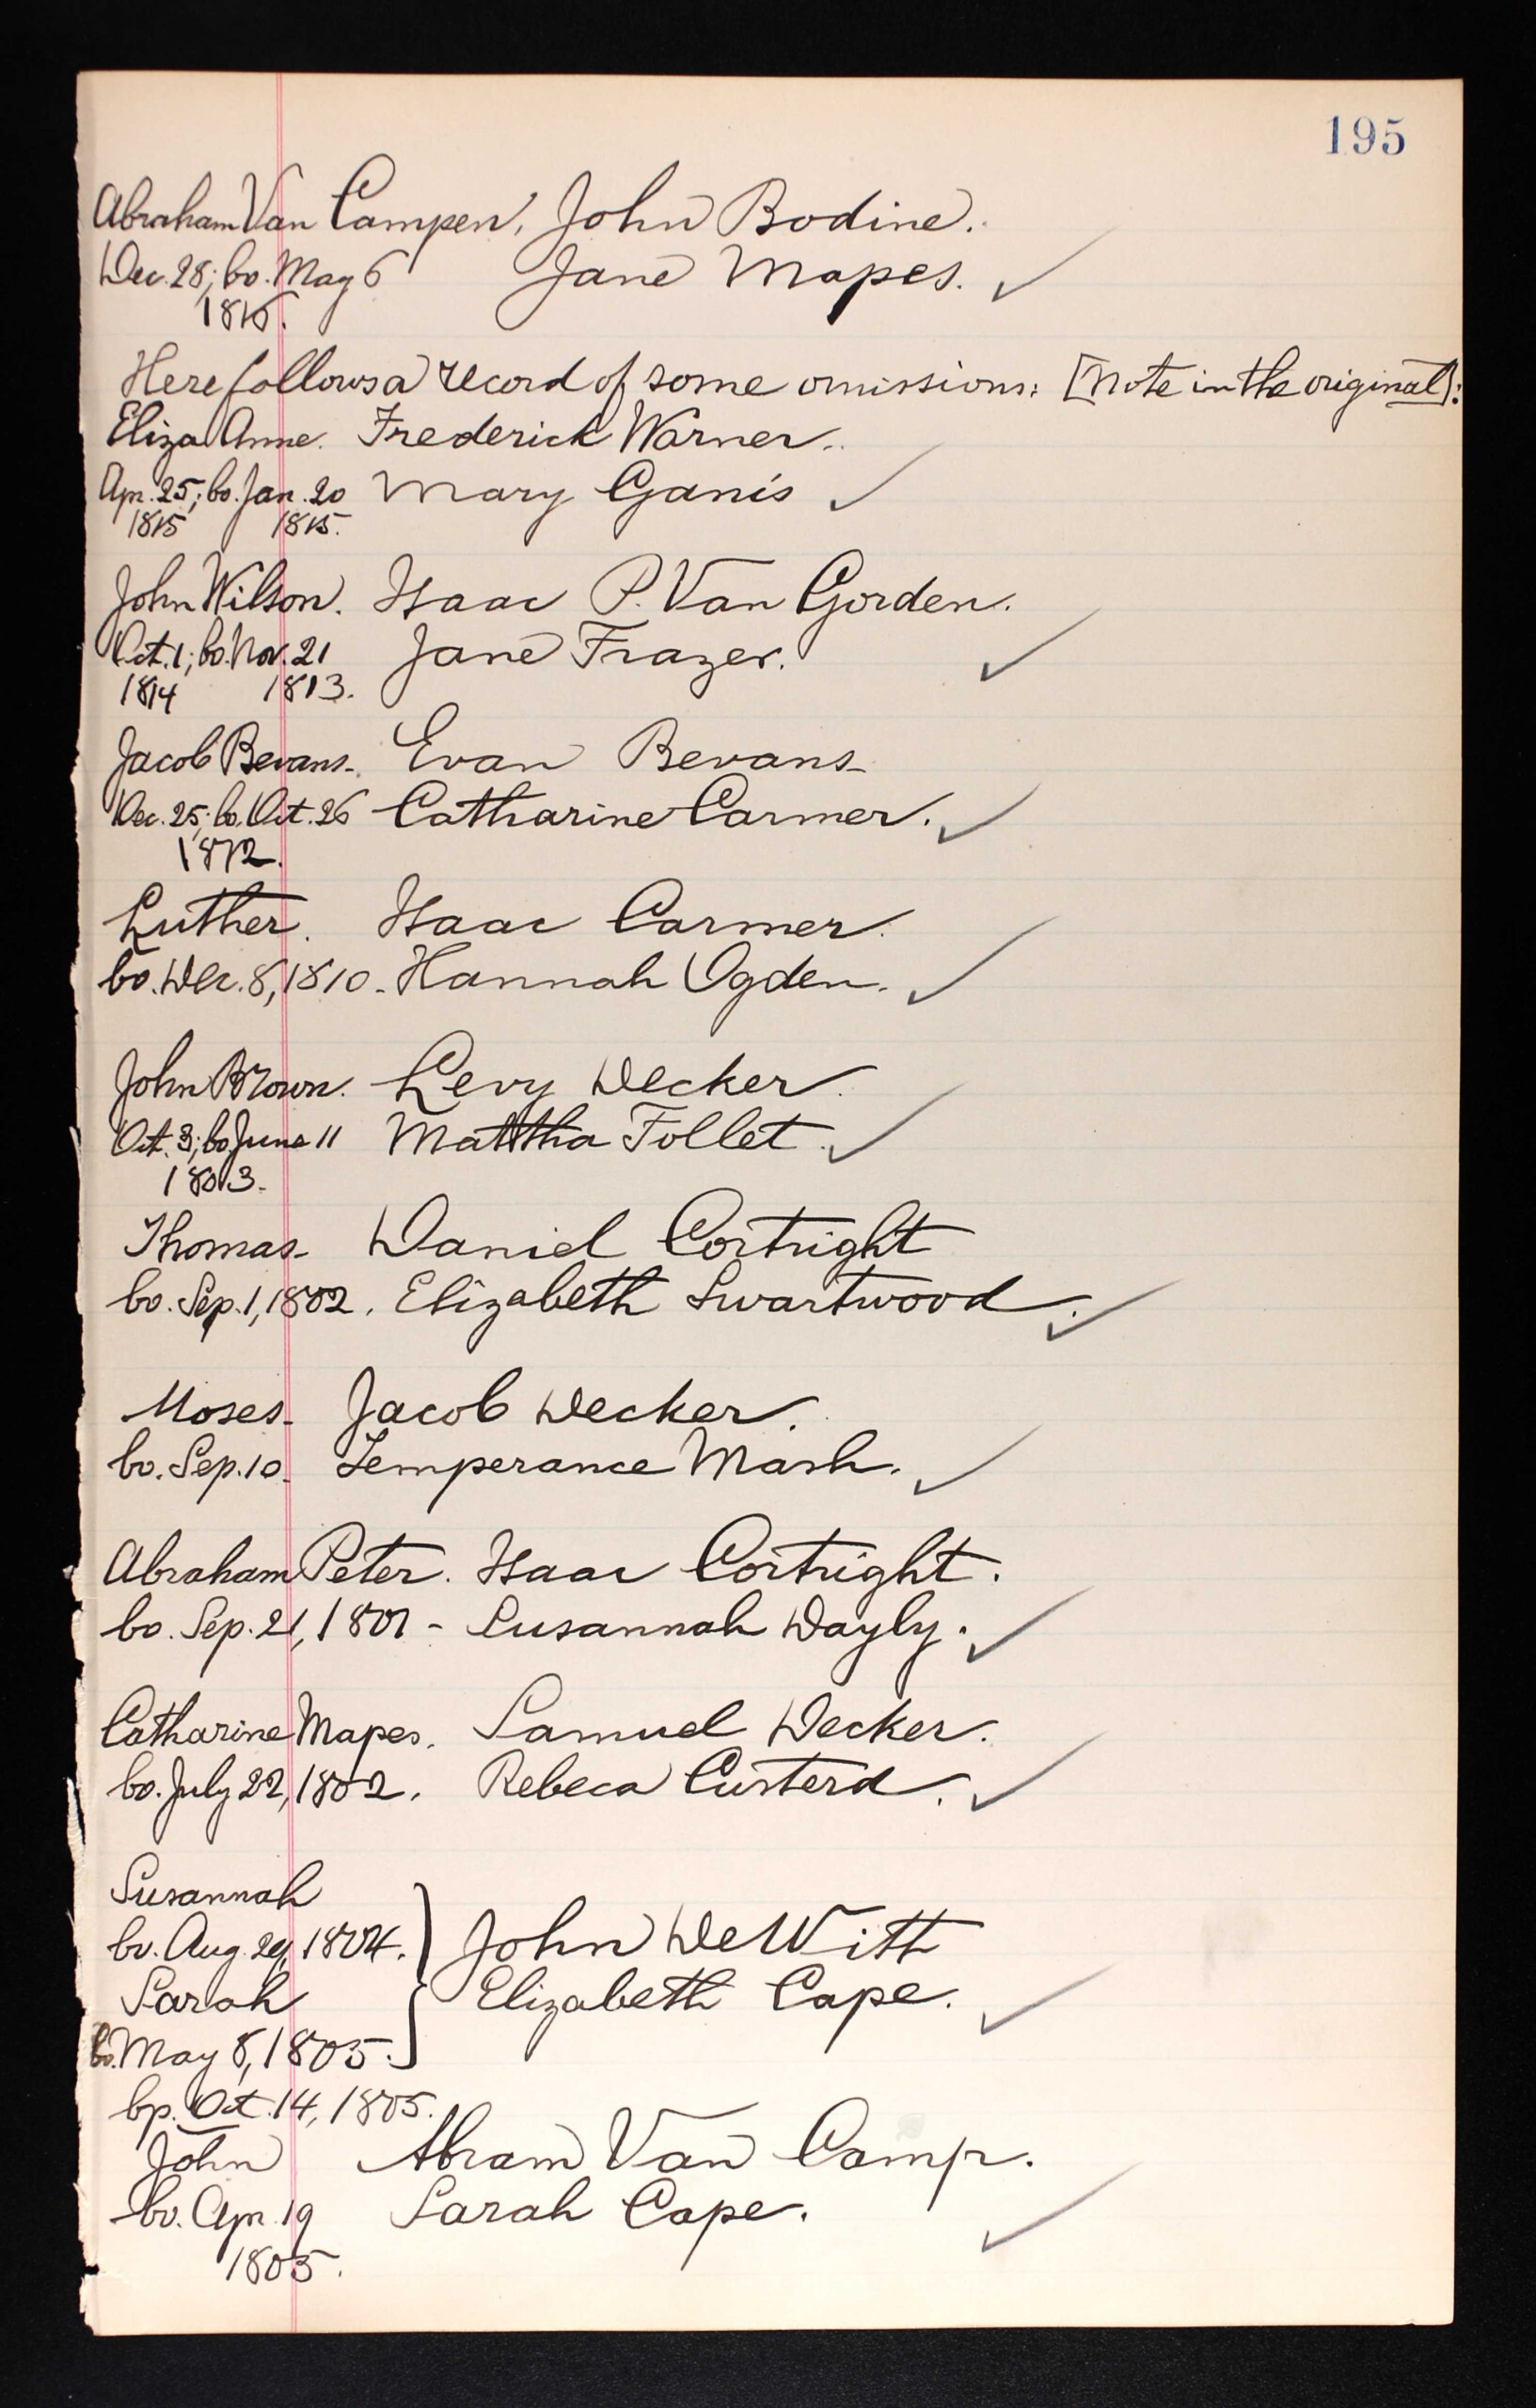 195
Abraham Van Campen, John Bodine.
Dec. 28; bo. May 6 Jane Mapes.
1815.
Here follows a record of some omissions: [Note in the original]:
Eliza Anne. Frederick Warner.
Apr. 25; bo. Jan. 20 Mary Ganis
1815 1815.
John Wilson. Isaac P. Van Gorden.
Oct. 1; bo. Nov. 21 Jane Frazer.
1814 1813.
Jacob Bevans. Evan Bevans
Dec. 25; bo. Oct. 26 Catharine Carmer.
1812.
Luther. Isaac Carmer.
bo. Dec. 8, 1810. Hannah Ogden.
John Brown. Levy Decker.
Oct. 3; bo. June 11 Mattha Follet.
1803.
Thomas. Daniel Cortright
bo. Sep. 1, 1802. Elizabeth Swartwood.
Moses. Jacob Decker.
bo. Sep. 10. Temperance Mash.
Abraham Peter. Isaac Cortright.
bo. Sep. 21, 1801 - Susannah Dayly.
Catharine Mapes. Samuel Decker.
bo. July 22, 1802. Rebeca Custerd.
Susannah
bo. Aug. 29, 1804. John DeWitt
Sarah Elizabeth Cape.
bo. May 8, 1805.
bp. Oct. 14, 1805.
John Abram Van Camp.
bo. Apr. 19 Sarah Cape.
1805.